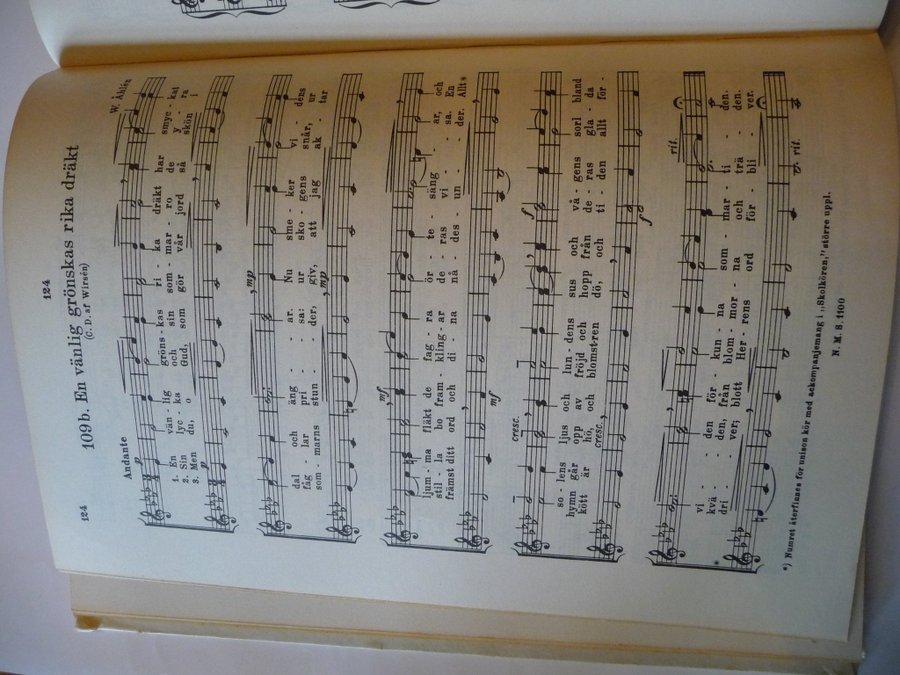 124
124
109b. En vänlig grönskas rika dräkt
(C. D. af Wirsén)
W. Åhlén
Andante
p
1. En vän - lig gröns - kas ri - ka dräkt har smyc - kat
2. Sin lyc - ka och sin som - mar - ro de y - ra
3. Men du, o Gud, som gör vår jord så skön i
p
mp
dal och äng - ar. Nu sme - ker vi - dens
fåg - lar pri - sa: Ur sko - gens snår, ur
som - marns stun - der, giv, att jag ak - tar
mp
mf
ljum - ma fläkt de fag - ra ör - te - säng - ar, och
stil - la bo fram - kling - ar de - ras vi - sa. En
främst ditt ord och di - na nå - des - un - der. Allt
mf
cresc. f
so - lens ljus och lun - dens sus och vå - gens sorl bland
hymn går opp av fröjd och hopp från de - ras gla - da
kött är hö, och blomst-ren dö, och ti - den allt för -
cresc. f
rit.
vi - den för - kun - na som - mar - ti - den.
kvä - den, från blom - mor - na och trä - den.
dri - ver; blott Her - rens ord för - bli - ver.
rit.
*) Numret återfinnes för unison kör med ackompanjemang i „Skolkören,” större uppl.
N. M. S. 1100